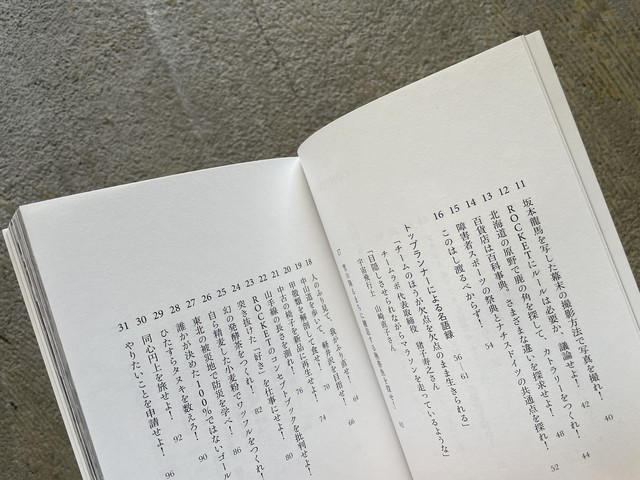 11 坂本龍馬を写した幕末の撮影方法で写真を撮れ! 40
12 ROCKETにルールは必要か、議論せよ! 42
13 北海道の原野で鹿の角を探して、カトラリーをつくれ! 44
14 百貨店は百科事典。さまざまな違いを探求せよ! 48
15 障害者スポーツの祭典とナチスドイツの共通点を探れ! 52
16 このはし渡るべからず! 54
トップランナーによる名語録 56
「チームのほうが欠点を欠点のまま生きられる」
チームラボ 代表取締役 猪子寿之さん 61
「目隠しさせられながらマラソンを走っているような」
宇宙飛行士 山崎直子さん
17
18 人のふり見て、我がふり見せよ! 64
19 中山道を歩いて、軽井沢を目指せ! 66
20 甲殻類を解剖して食せ! 70
21 中古の椅子を新品に再生せよ! 74
22 山手線の長さを測れ! 76
23 ROCKETのコンセプトブックを批判せよ! 80
24 突き抜けた「好き」を仕事にせよ! 82
25 幻の発酵茶をつくれ!
26 自ら精麦した小麦粉でワッフルをつくれ! 86
27 東北の被災地で防災を学べ!
28 誰かが決めた100%ではないゴール
29 ひたすらタヌキを数えろ! 90
30 同心円上を旅せよ! 92
31 やりたいことを申請せよ! 96